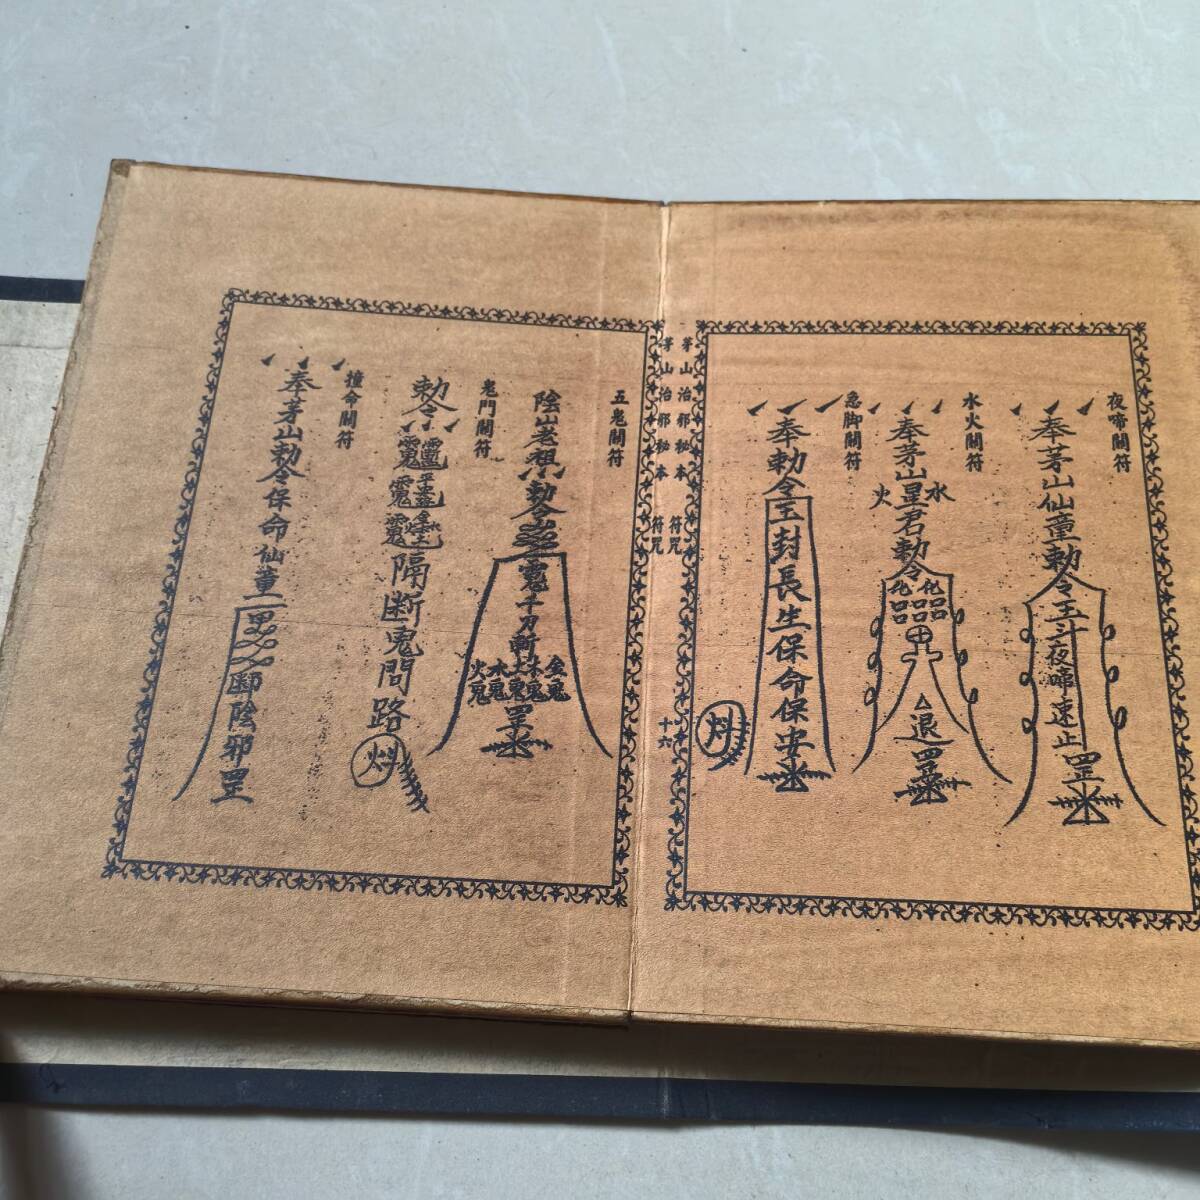 夜啼關符
奉茅山仙童勅令玉斗夜啼速止罡
水火關符
奉茅山星君勅令
水
火
退罡
急脚關符
奉勅令玉封長生保命保安
茅山治邪秘本 符咒
十六
茅山治邪秘本 符咒
五鬼關符
陰山老祖勅令
千刀斬
金鬼
木鬼
土鬼
水鬼
火鬼
罡
鬼門關符
勅令
隔断鬼門路
撞命關符
奉茅山勅令保命仙童
陰邪罡